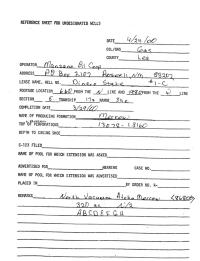 REFERENCE SHEET FOR UNDESIGNATED WELLS
DATE 4/24/00
OIL/GAS Gas
COUNTY Lea
OPERATOR Manzano Oil Corp
ADDRESS P O Box 2107 Roswell, NM 88202
LEASE NAME, WELL NO. State #1-C
FOOTAGE LOCATION 660 FROM THE N LINE AND 1980 FROM THE LINE
SECTION TOWNSHIP 17s RANGE
COMPLETION DATE 3/29/00
NAME OF PRODUCING FORMATION Morrow
TOP OF PERFORATIONS 13078-13160
DEPTH TO CASING SHOE
C-123 FILED
NAME OF POOL FOR WHICH EXTENSION WAS ASKED
ADVERTISED FOR HEARING CASE NO.
NAME OF POOL FOR WHICH EXTENSION WAS ASKED
PLACED IN BY ORDER NO. R-
REMARKS North Vacuum Atoka Morrow
320 ac N/2
ABCDEFGH